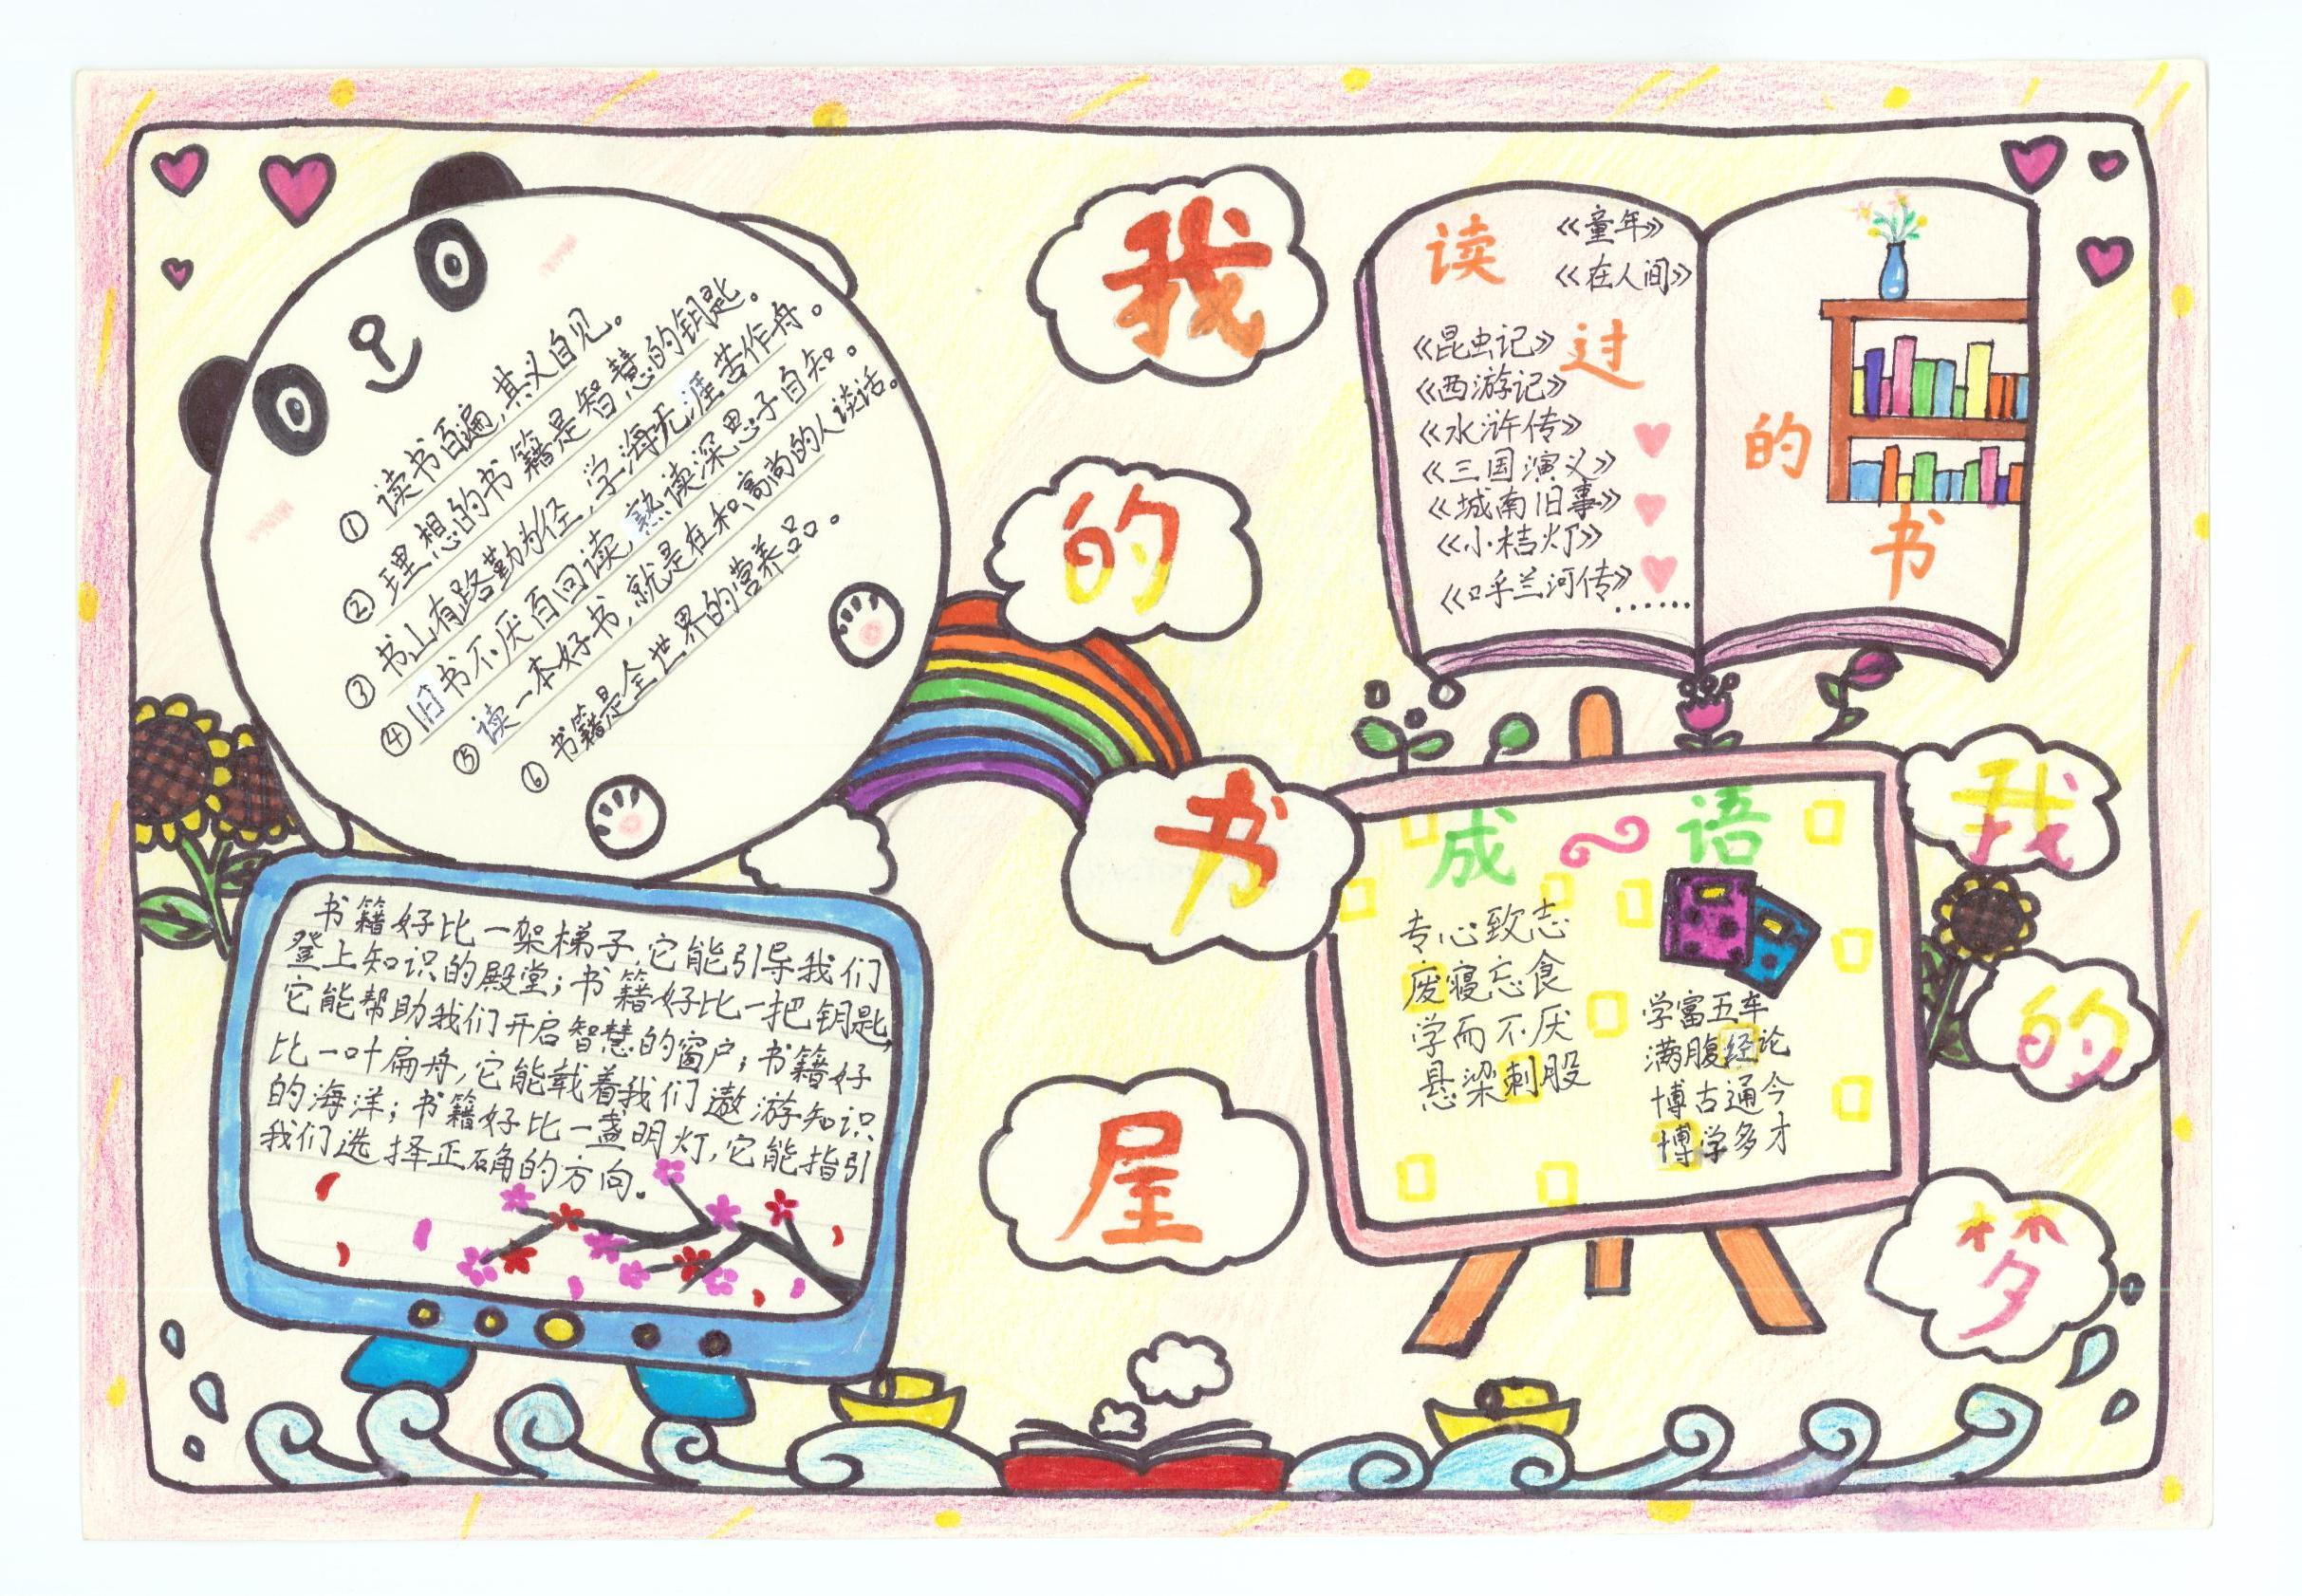 我的书屋
我的梦
①读书百遍,其义自见。
②理想的书籍是智慧的钥匙。
③书山有路勤为径,学海无涯苦作舟。
④旧书不厌百回读,熟读深思子自知。
⑤读一本好书,就是在和高尚的人谈话。
⑥书籍是全世界的营养品。
书籍好比一架梯子,它能引导我们
登上知识的殿堂;书籍好比一把钥匙,
它能帮助我们开启智慧的窗户;书籍好
比一叶扁舟,它能载着我们遨游知识
的海洋;书籍好比一盏明灯,它能指引
我们选择正确的方向。
读过的书
《童年》
《在人间》
《昆虫记》
《西游记》
《水浒传》
《三国演义》
《城南旧事》
《小桔灯》
《呼兰河传》……
成语
专心致志
废寝忘食
学而不厌
悬梁刺股
学富五车
满腹经论
博古通今
博学多才